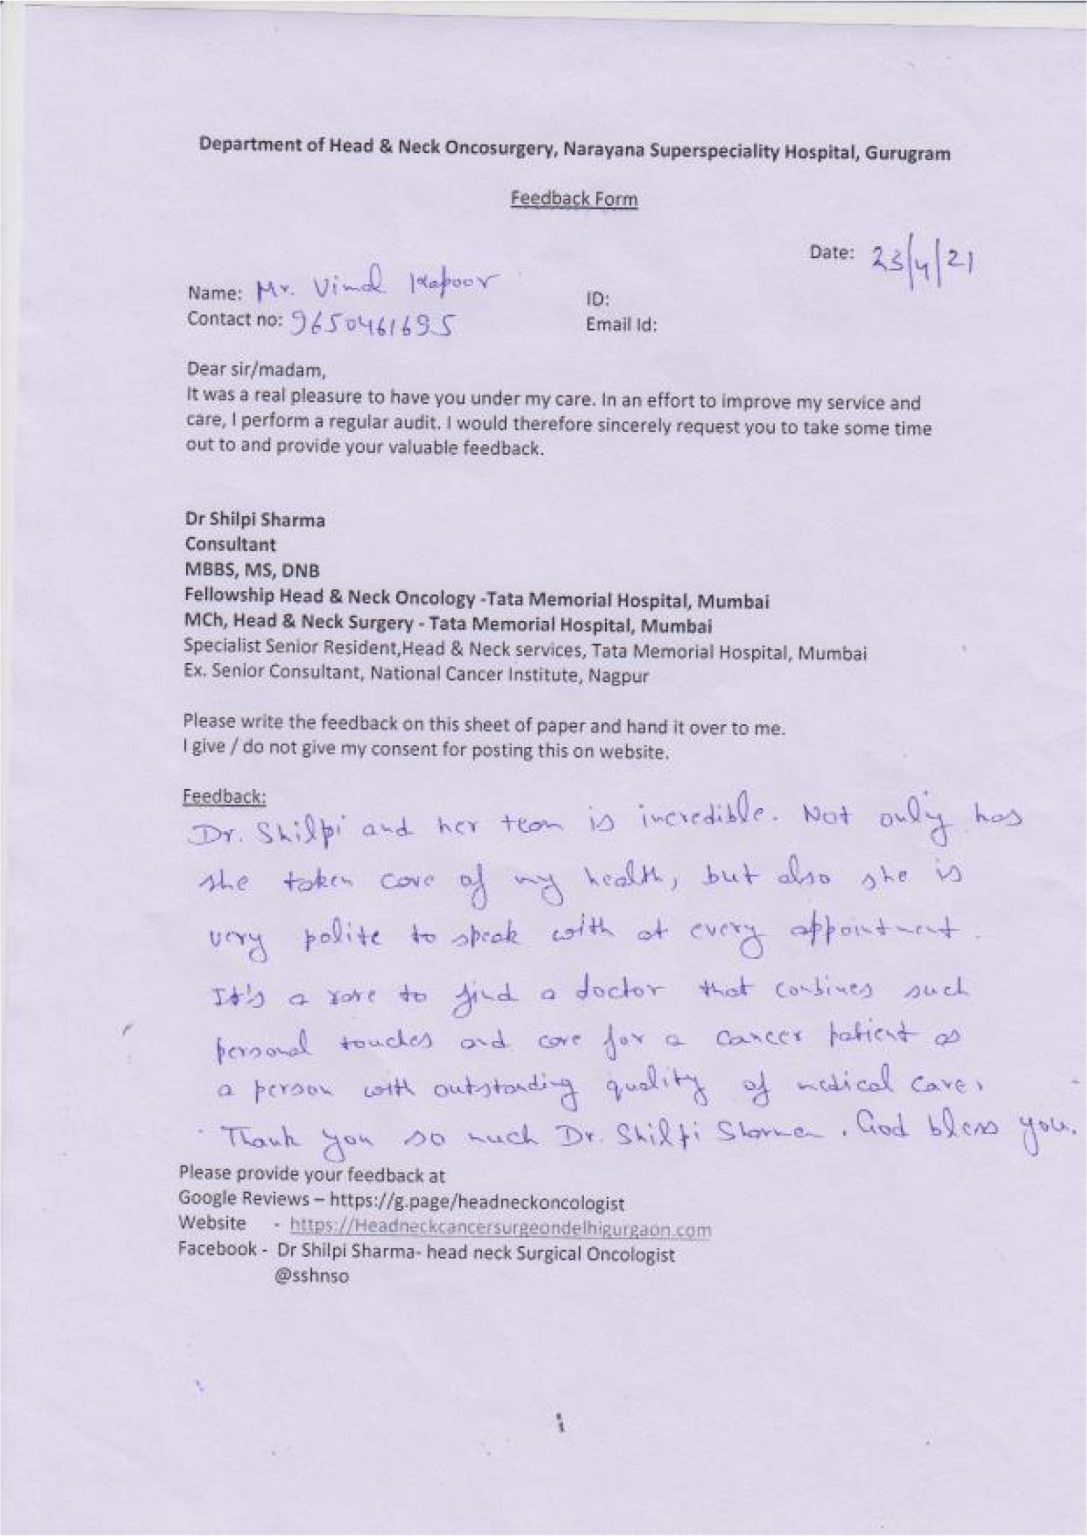 Department of Head & Neck Oncosurgery, Narayana Superspeciality Hospital, Gurugram
Feedback Form
Date: 23/4/21
Name: Mr. Vimal Kapoor
ID:
Contact no: 9650461695
Email Id:
Dear sir/madam,
It was a real pleasure to have you under my care. In an effort to improve my service and
care, I perform a regular audit. I would therefore sincerely request you to take some time
out to and provide your valuable feedback.
Dr Shilpi Sharma
Consultant
MBBS, MS, DNB
Fellowship Head & Neck Oncology -Tata Memorial Hospital, Mumbai
MCh, Head & Neck Surgery - Tata Memorial Hospital, Mumbai
Specialist Senior Resident,Head & Neck services, Tata Memorial Hospital, Mumbai
Ex. Senior Consultant, National Cancer Institute, Nagpur
Please write the feedback on this sheet of paper and hand it over to me.
I give / do not give my consent for posting this on website.
Feedback:
Dr. Shilpi and her team is incredible. Not only has
she taken care of my health, but also she is
very polite to speak with at every appointment.
It's a rare to find a doctor that combines such
personal touches and care for a cancer patient as
a person with outstanding quality of medical care.
Thank you so much Dr. Shilpi Sharma. God bless you.
Please provide your feedback at
Google Reviews – https://g.page/headneckoncologist
Website - https://Headneckcancersurgeondelhigurgaon.com
Facebook - Dr Shilpi Sharma- head neck Surgical Oncologist
@sshnso